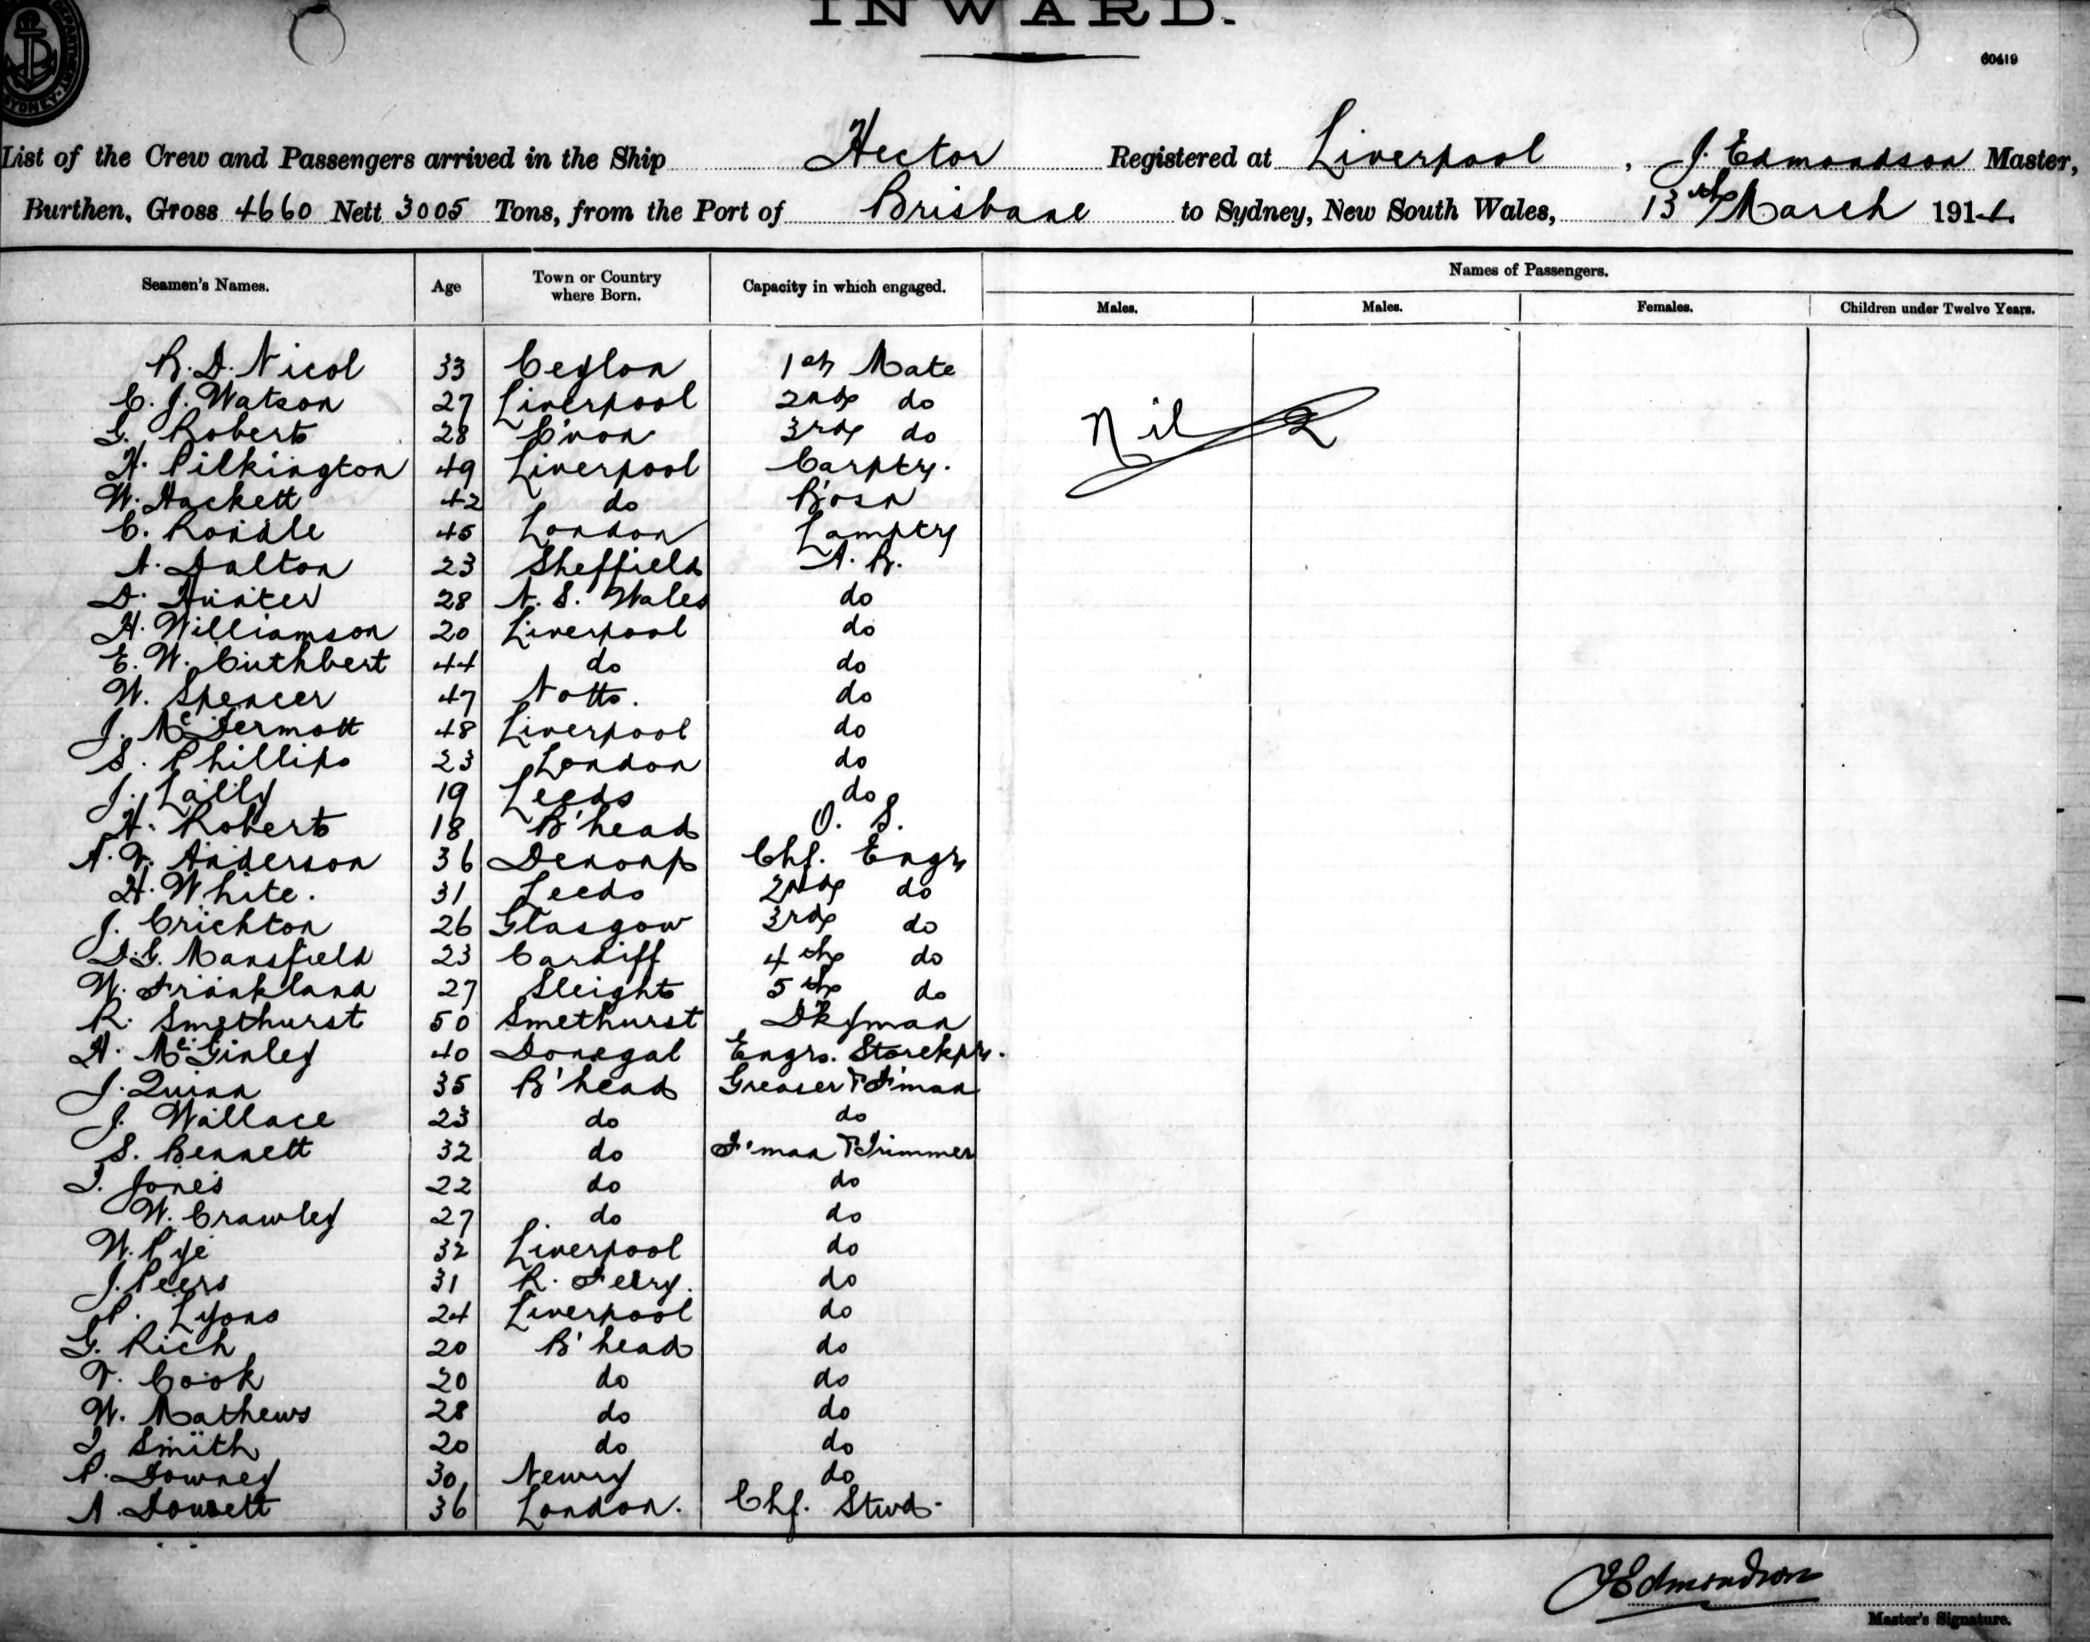 INWARD.
60419
List of the Crew and Passengers arrived in the Ship Hector Registered at Liverpool, J. Edmondson Master,
Burthen, Gross 4660 Nett 3005 Tons, from the Port of Brisbane to Sydney, New South Wales, 13th March 1911.
Seamen's Names. Age Town or Country where Born. Capacity in which engaged. Names of Passengers.
Males. Males. Females. Children under Twelve Years.
R. D. Nicol 33 Ceylon 1st Mate
C. J. Watson 27 Liverpool 2nd do
G. Roberts 28 C'von 3rd do Nil
H. Pilkington 49 Liverpool Carptr.
W. Hackett 42 do B'osn
C. Roddle 45 London Lamptr
A. Dalton 23 Sheffield A. B.
D. Hunter 28 N. S. Wales do
H. Williamson 20 Liverpool do
E. W. Cuthbert 44 do do
W. Spencer 47 Notts. do
J. McDermott 48 Liverpool do
S. Phillips 23 London do
J. Lally 19 Leeds do
H. Roberts 18 B'head O. S.
A. V. Anderson 36 Chf. Engr
H. White. 31 Leeds 2nd do
J. Crichton 26 Glasgow 3rd do
D. G. Mansfield 23 Cardiff 4th do
W. Frankland 27 Sleights 5th do
R. Smethurst 50 Smethurst Dkyman
H. McGinley 40 Donegal Engrs. Storekpr.
J. Quinn 35 B'head Greaser & F'man
J. Wallace 23 do do
S. Bennett 32 do F'man & Trimmer
T. Jones 22 do do
W. Crawley 27 do do
W. Pye 32 Liverpool do
J. Peers 31 R. Ferry. do
P. Lyons 24 Liverpool do
G. Rich 20 B'head do
V. Cook 20 do do
W. Mathews 28 do do
T. Smith 20 do do
P. Downey 30 Newry do
A. Dowsett 36 London. Chf. Stwd.
J Edmondson
Master's Signature.